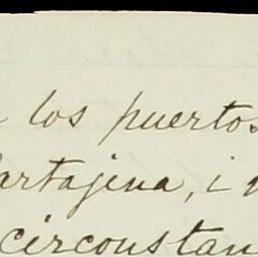 los puertos
artajena, i
circonstan